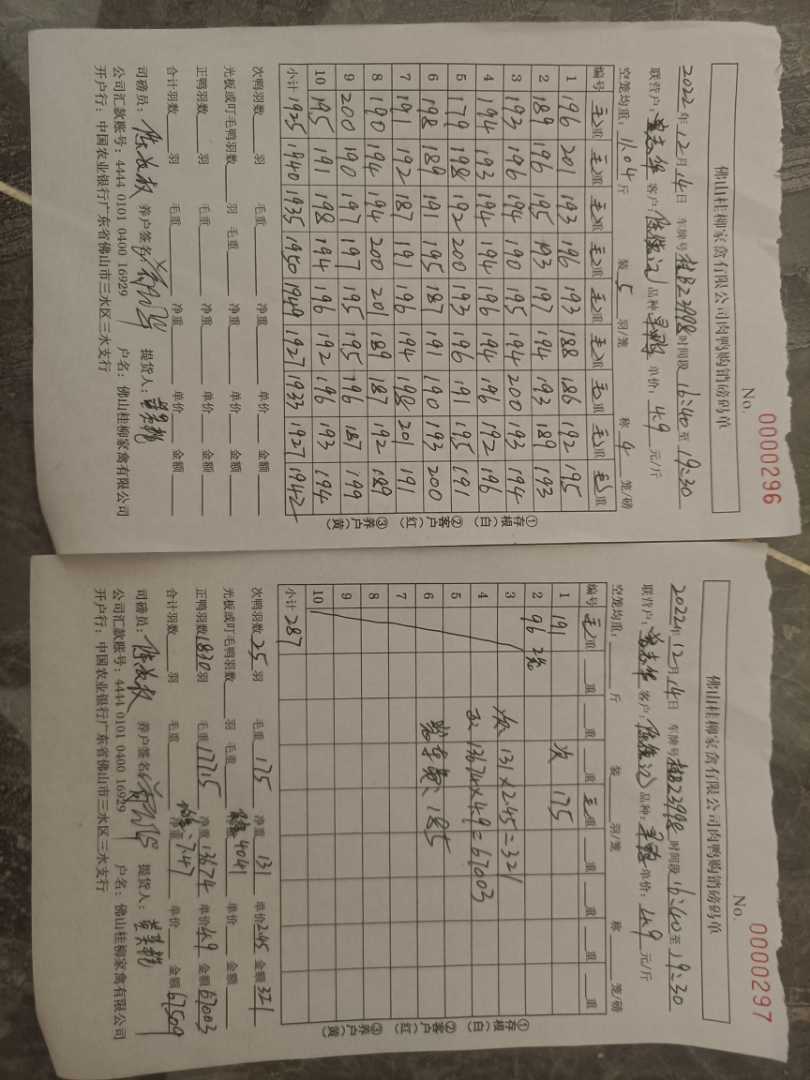 佛山桂柳家禽有限公司肉鸭购销磅码单
No. 0000296
2022年12月14日 车牌号桂B23998时间段16:40至19:30
联营户: 客户: 品种: 单价:4.9元/斤
空笼均重:11.04斤 装5羽/笼 称4笼/磅
编号 毛重 毛重 毛重 毛重 毛重 毛重 毛重 毛重 毛重
1 196 201 193 196 193 188 186 192 195
2 189 196 195 193 197 194 193 189 193
3 193 196 194 190 195 194 200 193 194
4 194 193 194 194 196 194 196 192 196
5 179 198 192 200 193 196 191 195 191
6 198 189 191 195 187 191 190 193 200
7 191 192 187 191 196 194 198 201 191
8 190 194 194 200 201 189 187 192 189
9 200 190 197 197 195 195 196 187 199
10 195 191 198 194 196 192 196 193 194
小计 1925 1940 1935 1950 1949 1927 1933 1927 1942
①存根(白) ②客户(红) ③养户(黄)
次鸭羽数 羽 毛重 净重 单价 金额
正鸭羽数 羽 毛重 净重 单价 金额
光板或叮毛鸭羽数 羽 毛重 净重 单价 金额
合计羽数 羽 毛重 净重 单价 金额
司磅员: 养户签名 提货人:
公司汇款账号:4444 0101 0400 16929 户名:佛山桂柳家禽有限公司
开户行:中国农业银行广东省佛山市三水区三水支行
佛山桂柳家禽有限公司肉鸭购销磅码单
No. 0000297
2022年12月14日 车牌号桂B23998时间段16:40至19:30
联营户: 客户: 品种: 单价:4.9元/斤
空笼均重: 斤 装 羽/笼 称 笼/磅
编号 毛重 重 重 重 毛重 重 重 重 重
1 191 次 175
2 96 2笼
3 次 131×2.45=321
4 正 13674×4.9=67003
5
6 185
7
8
9
10
小计 287
①存根(白) ②客户(红) ③养户(黄)
次鸭羽数25羽 毛重175 净重131 单价2.45 金额321
正鸭羽数1830羽 毛重17715 净重13674 单价4.9 金额67003
光板或叮毛鸭羽数 羽 毛重 净重4041 单价 金额
合计羽数 羽 毛重 净重7.47 单价 金额67509
司磅员: 养户签名 提货人:
公司汇款账号:4444 0101 0400 16929 户名:佛山桂柳家禽有限公司
开户行:中国农业银行广东省佛山市三水区三水支行